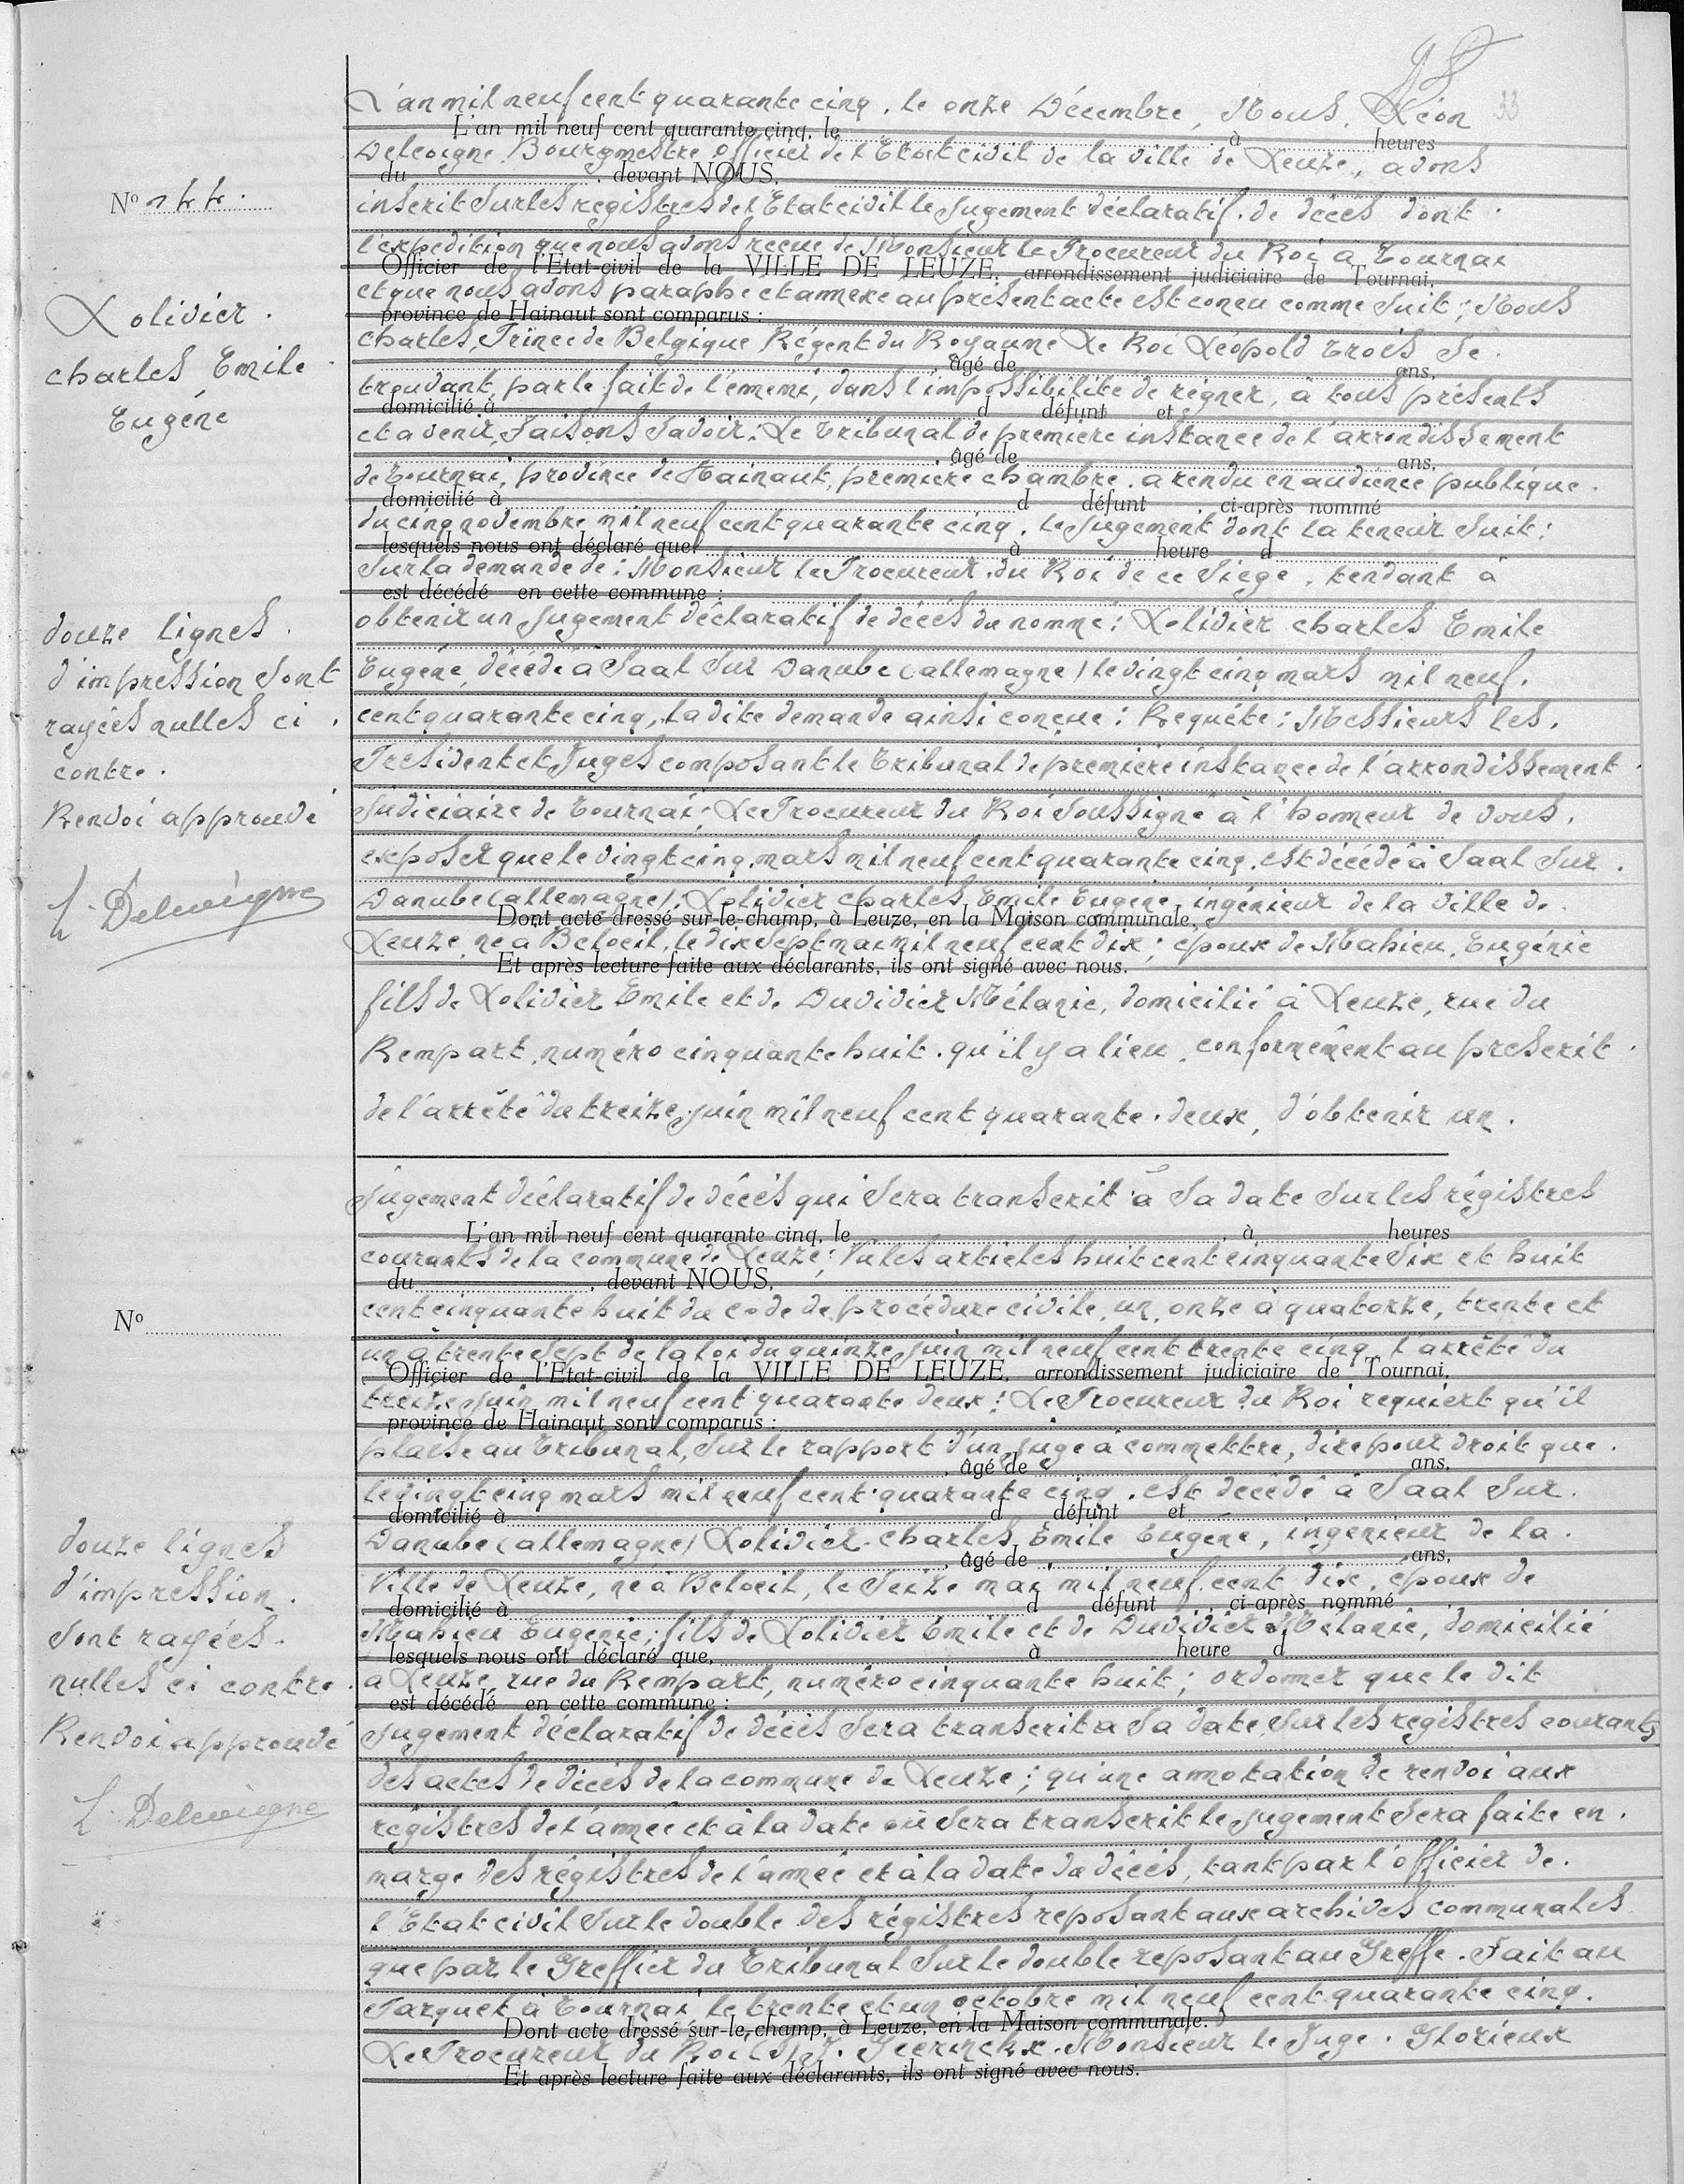 33
L'an mil neuf cent quarante cinq, le onze Décembre, Nous, Léon
L'an mil neuf cent quarante cinq, le à heures
Delcoigne Bourgmestre officier de l'Etat civil de la ville de Leuze, avons
du devant NOUS,
Nº 144.
inscrit sur les registres de l'Etat civil le jugement déclaratif de décès dont
l'expedition que nous avons reçue de Monsieur le Procureur du Roi a Tournai
Officier de l'Etat-civil de la VILLE DE LEUZE, arrondissement judiciaire de Tournai,
et que nous avons paraphé et annexé au présent acte est conçu comme suit; Nous
province de Hainaut sont comparus :
Lolivier.
Charles Emile
Eugène
Charles, Prince de Belgique Régent du Royaume Le Roi Léopold trois se
âgé de ans,
trouvant, par le fait de l'ennemi, dans l'impossibilité de régner, à tous présents
domicilié à d défunt et
et a venir, Faisons savoir: Le Tribunal de première instance de l'arrondissement
âgé de ans,
de Tournai, province de Hainaut, première chambre. a rendu en audience publique.
domicilié à d défunt ci-après nommé
du cinq novembre mil neuf cent quarante cinq. le jugement dont la teneur suit:
lesquels nous ont déclaré que à heure d
Sur la demande de: Monsieur le Procureur du Roi de ce Siege, tendant à
est décédé en cette commune :
obtenir un jugement déclaratif de décès du nommé: Lolivier Charles Emile
Eugène, décédé à Saal sur Danube (allemagne) le vingt cinq mars mil neuf.
cent quarante cinq, la dite demande ainsi conçue: Requête: Messieurs les.
President et Juges composant le Tribunal de première instance de l'arrondissement
judiciaire de Tournai; Le Procureur du Roi soussigné à l'honneur de vous.
exposer que le vingt cinq mars mil neuf cent quarante cinq. est décédé à Saal sur.
Danube (allemagne). Lolivier Charles Emile Eugène, ingénieur de la ville de
Dont acte dressé sur-le-champ, à Leuze, en la Maison communale,
Leuze né à Beloeil, le dix sept mai mil neuf cent dix; époux de Mahieu, Eugénie
Et après lecture faite aux déclarants, ils ont signé avec nous.
fils de Lolivier Emile et de Duvivier Mélanie, domicilié à Leuze, rue du
Rempart, numéro cinquante huit. qu'il y a lieu, conformément au prescrit
de l'arrêté du treize juin mil neuf cent quarante deux, d'obtenir un.
douze lignes.
d'impression sont
rayées nulles ci
contre.
Renvoi approuvé
L. Delcoigne
jugement déclaratif de décès qui sera transcrit à sa date sur les régistres
L'an mil neuf cent quarante cinq, le à heures
courants de la commune de Leuze; Vu les articles huit cent cinquante six et huit
du devant NOUS,
Nº
cent cinquante huit du code de procédure civile, un, onze à quatorze, trente et
un à trente sept de la loi du quinze juin mil neuf cent trente cinq, l'arrêté du
Officier de l'Etat-civil de la VILLE DE LEUZE, arrondissement judiciaire de Tournai,
treize juin mil neuf cent quarante deux; Le Procureur du Roi requiert qu'il
province de Hainaut sont comparus :
plaise au Tribunal, sur le rapport d'un juge à commettre, dire pour droit que.
âgé de ans,
le vingt cinq mars mil neuf cent quarante cinq. est décédé à Saal sur.
domicilié à d défunt et
Danube (allemagne) Lolivier. Charles Emile Eugène, ingénieur de la.
âgé de ans,
Ville de Leuze, né à Beloeil, le seize mai mil neuf cent dix, époux de
domicilié à d défunt ci-après nommé
Mahieu Eugenie; fils de Lolivier Emile et de Duvivier Mélanie, domicilié
lesquels nous ont déclaré que, à heure d
a Leuze, rue du Rempart, numéro cinquante huit; ordonner que le dit
est décédé en cette commune :
jugement déclaratif de décès sera transcrit a sa date sur les registres courants
des actes de décès de la commune de Leuze; qu'une annotation de renvoi aux
régistres de l'année et à la date où sera transcrit le jugement sera faite en.
marge des régistres de l'année et à la date du décès, tant par l'officier de.
l'Etat civil sur le double des régistres reposant aux archives communales
que par le Greffier du Tribunal sur le double reposant au Greffe. Fait au
Parquet à Tournai le trente et un octobre mil neuf cent quarante cinq.
Dont acte dressé sur-le-champ, à Leuze, en la Maison communale.
Le Procureur du Roi (S) Monsieur le Juge. Glorieux
Et après lecture faite aux déclarants, ils ont signé avec nous.
douze lignes
d'impression.
sont rayées.
nulles ci contre.
Renvoi approuvé
L. Delcoigne